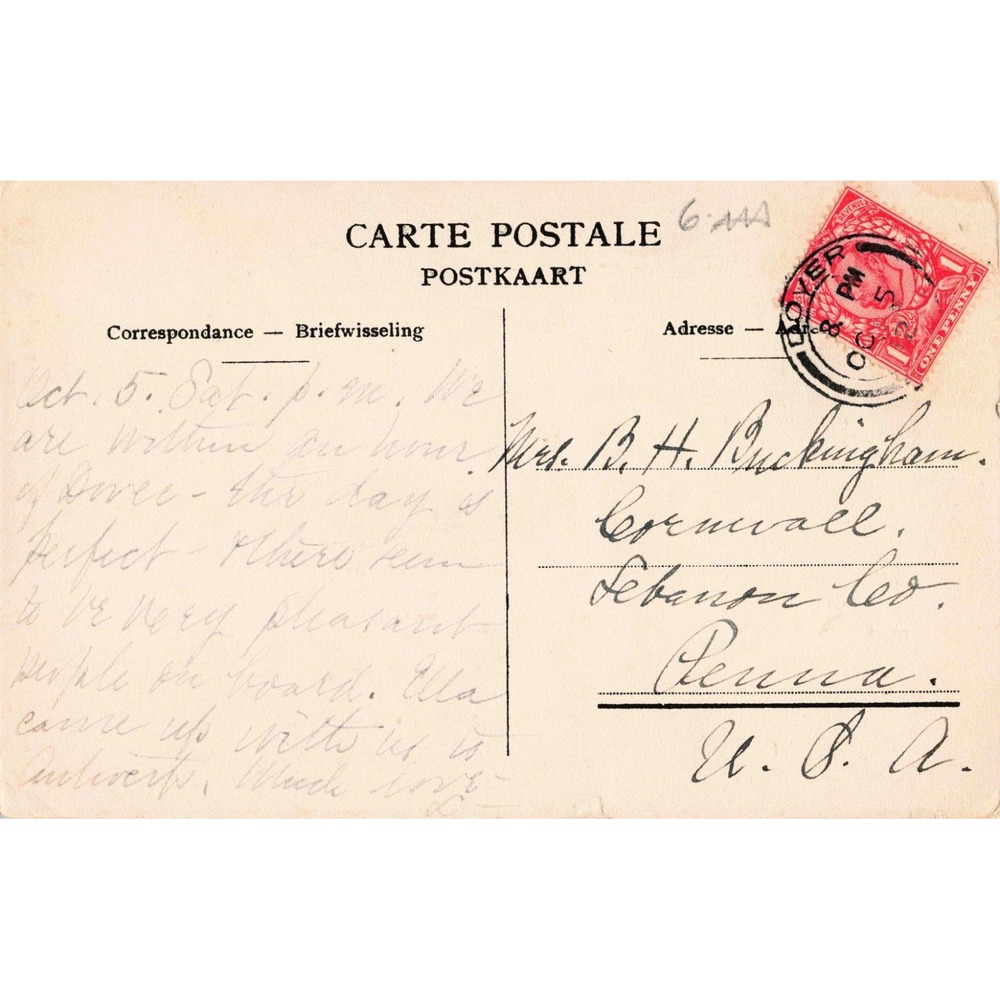 CARTE POSTALE
POSTKAART
Correspondance — Briefwisseling
Adresse —
Oct. 5. Sat. p.m. We
are within an hour
of Dover - the day is
perfect - there seem
to be very pleasant
people on board. Ella
came up with us
Antwerp. Much love
L
Mrs. B. H. Buckingham.
Cornwall.
Lebanon Co.
Penna.
U. S. A.
DOVER
8 PM
OC 5
12
1 ONE PENNY 1
REVENUE